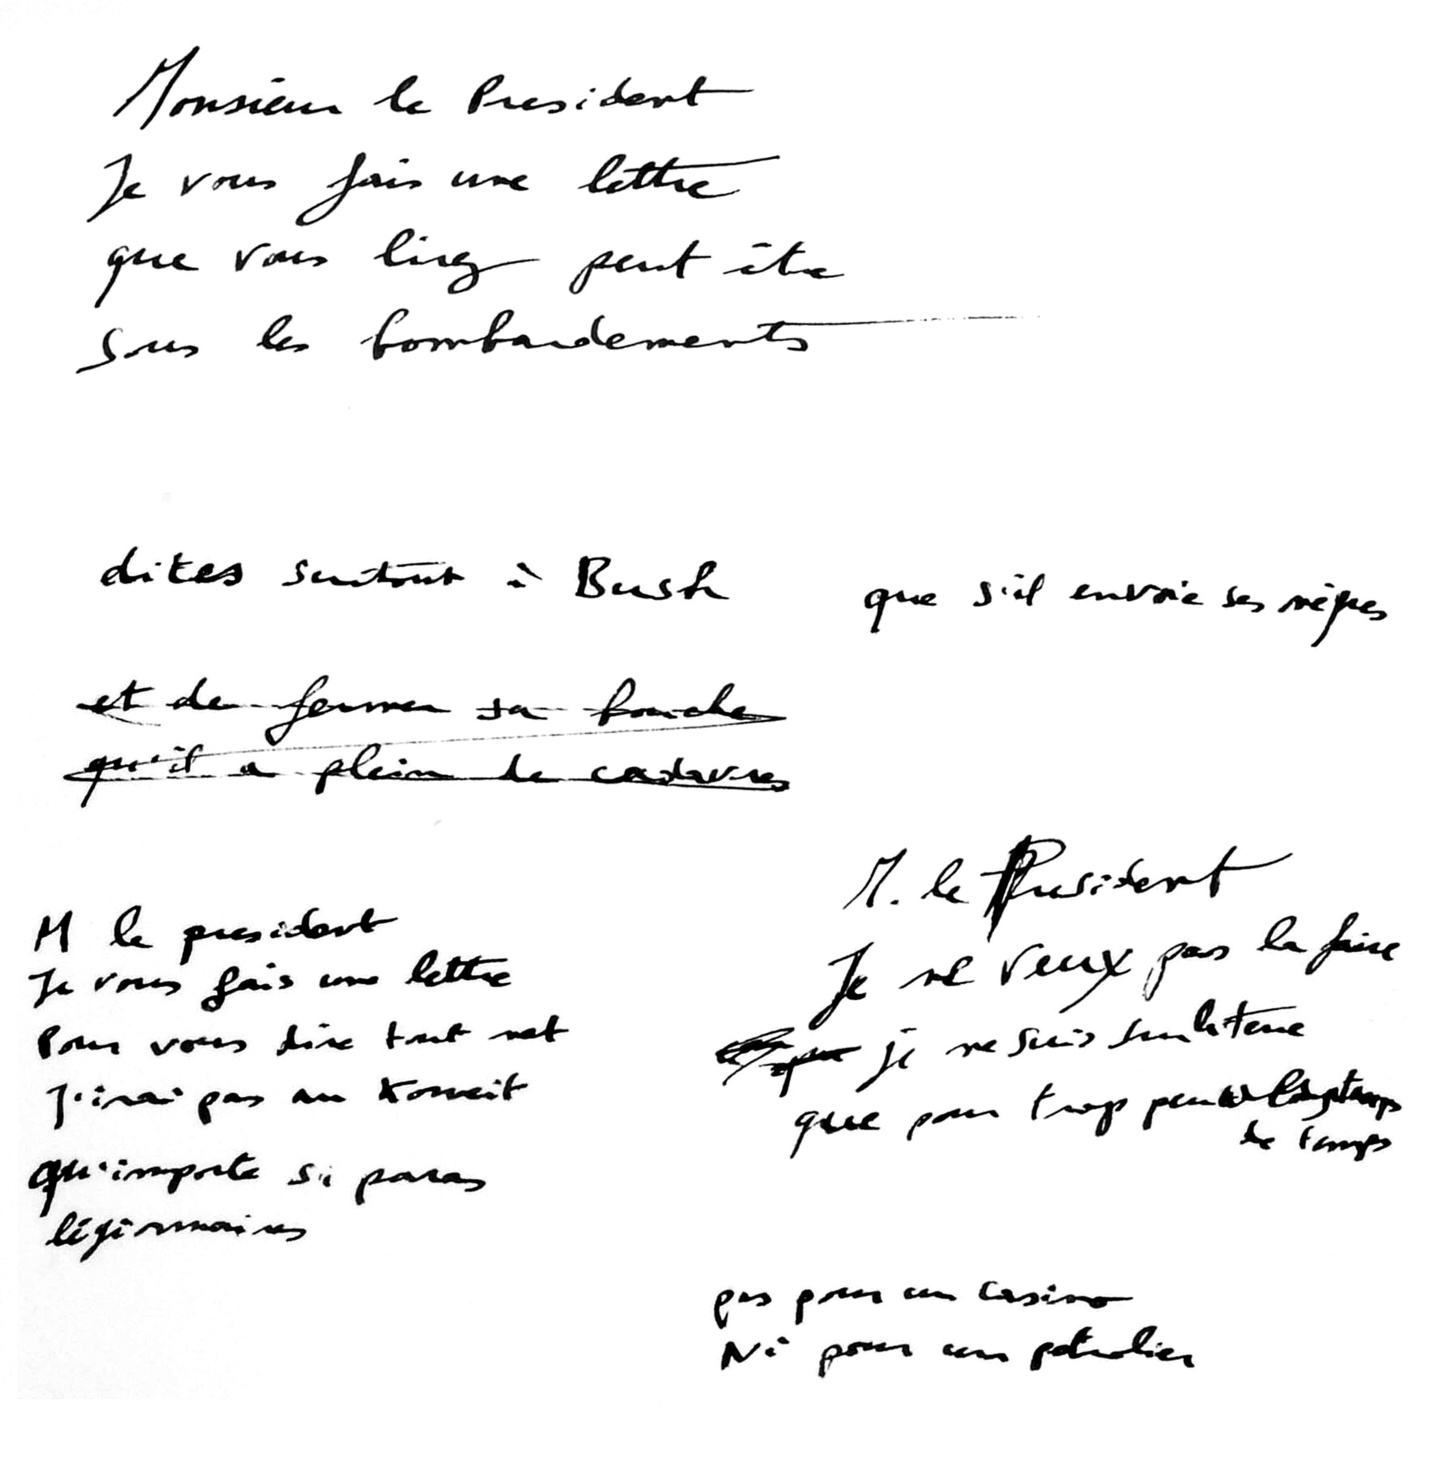 Monsieur le President
Je vous fais une lettre
que vous lirez peut être
sous les bombardements
dites surtout à Bush
que s'il envoie ses
et de fermer sa bouche
qu'il a plein de cadavres
M le president
Je vous fais une lettre
Pour vous dire tout net
J'irai pas au Koweit
qu'importe si paras
légionnaires
M. le President
Je ne veux pas la faire
je ne suis sur la terre
que pour trop peu
de temps
pas pour un casino
Ni pour un petrolier